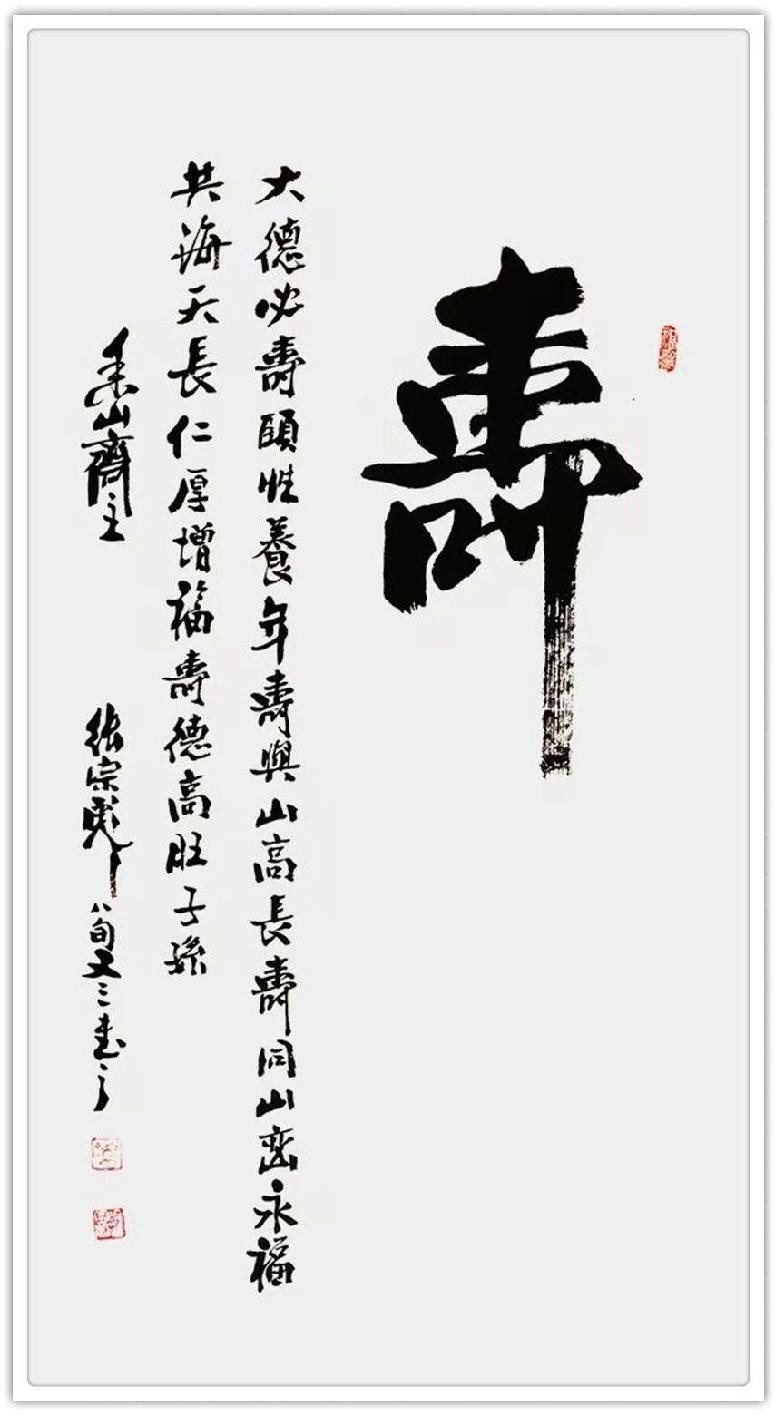 壽
大德必壽頤性養年壽與山高長壽同山峦永福
共海天長仁厚增福壽德高旺子孫
山齋主 張宗彪八旬又三書之